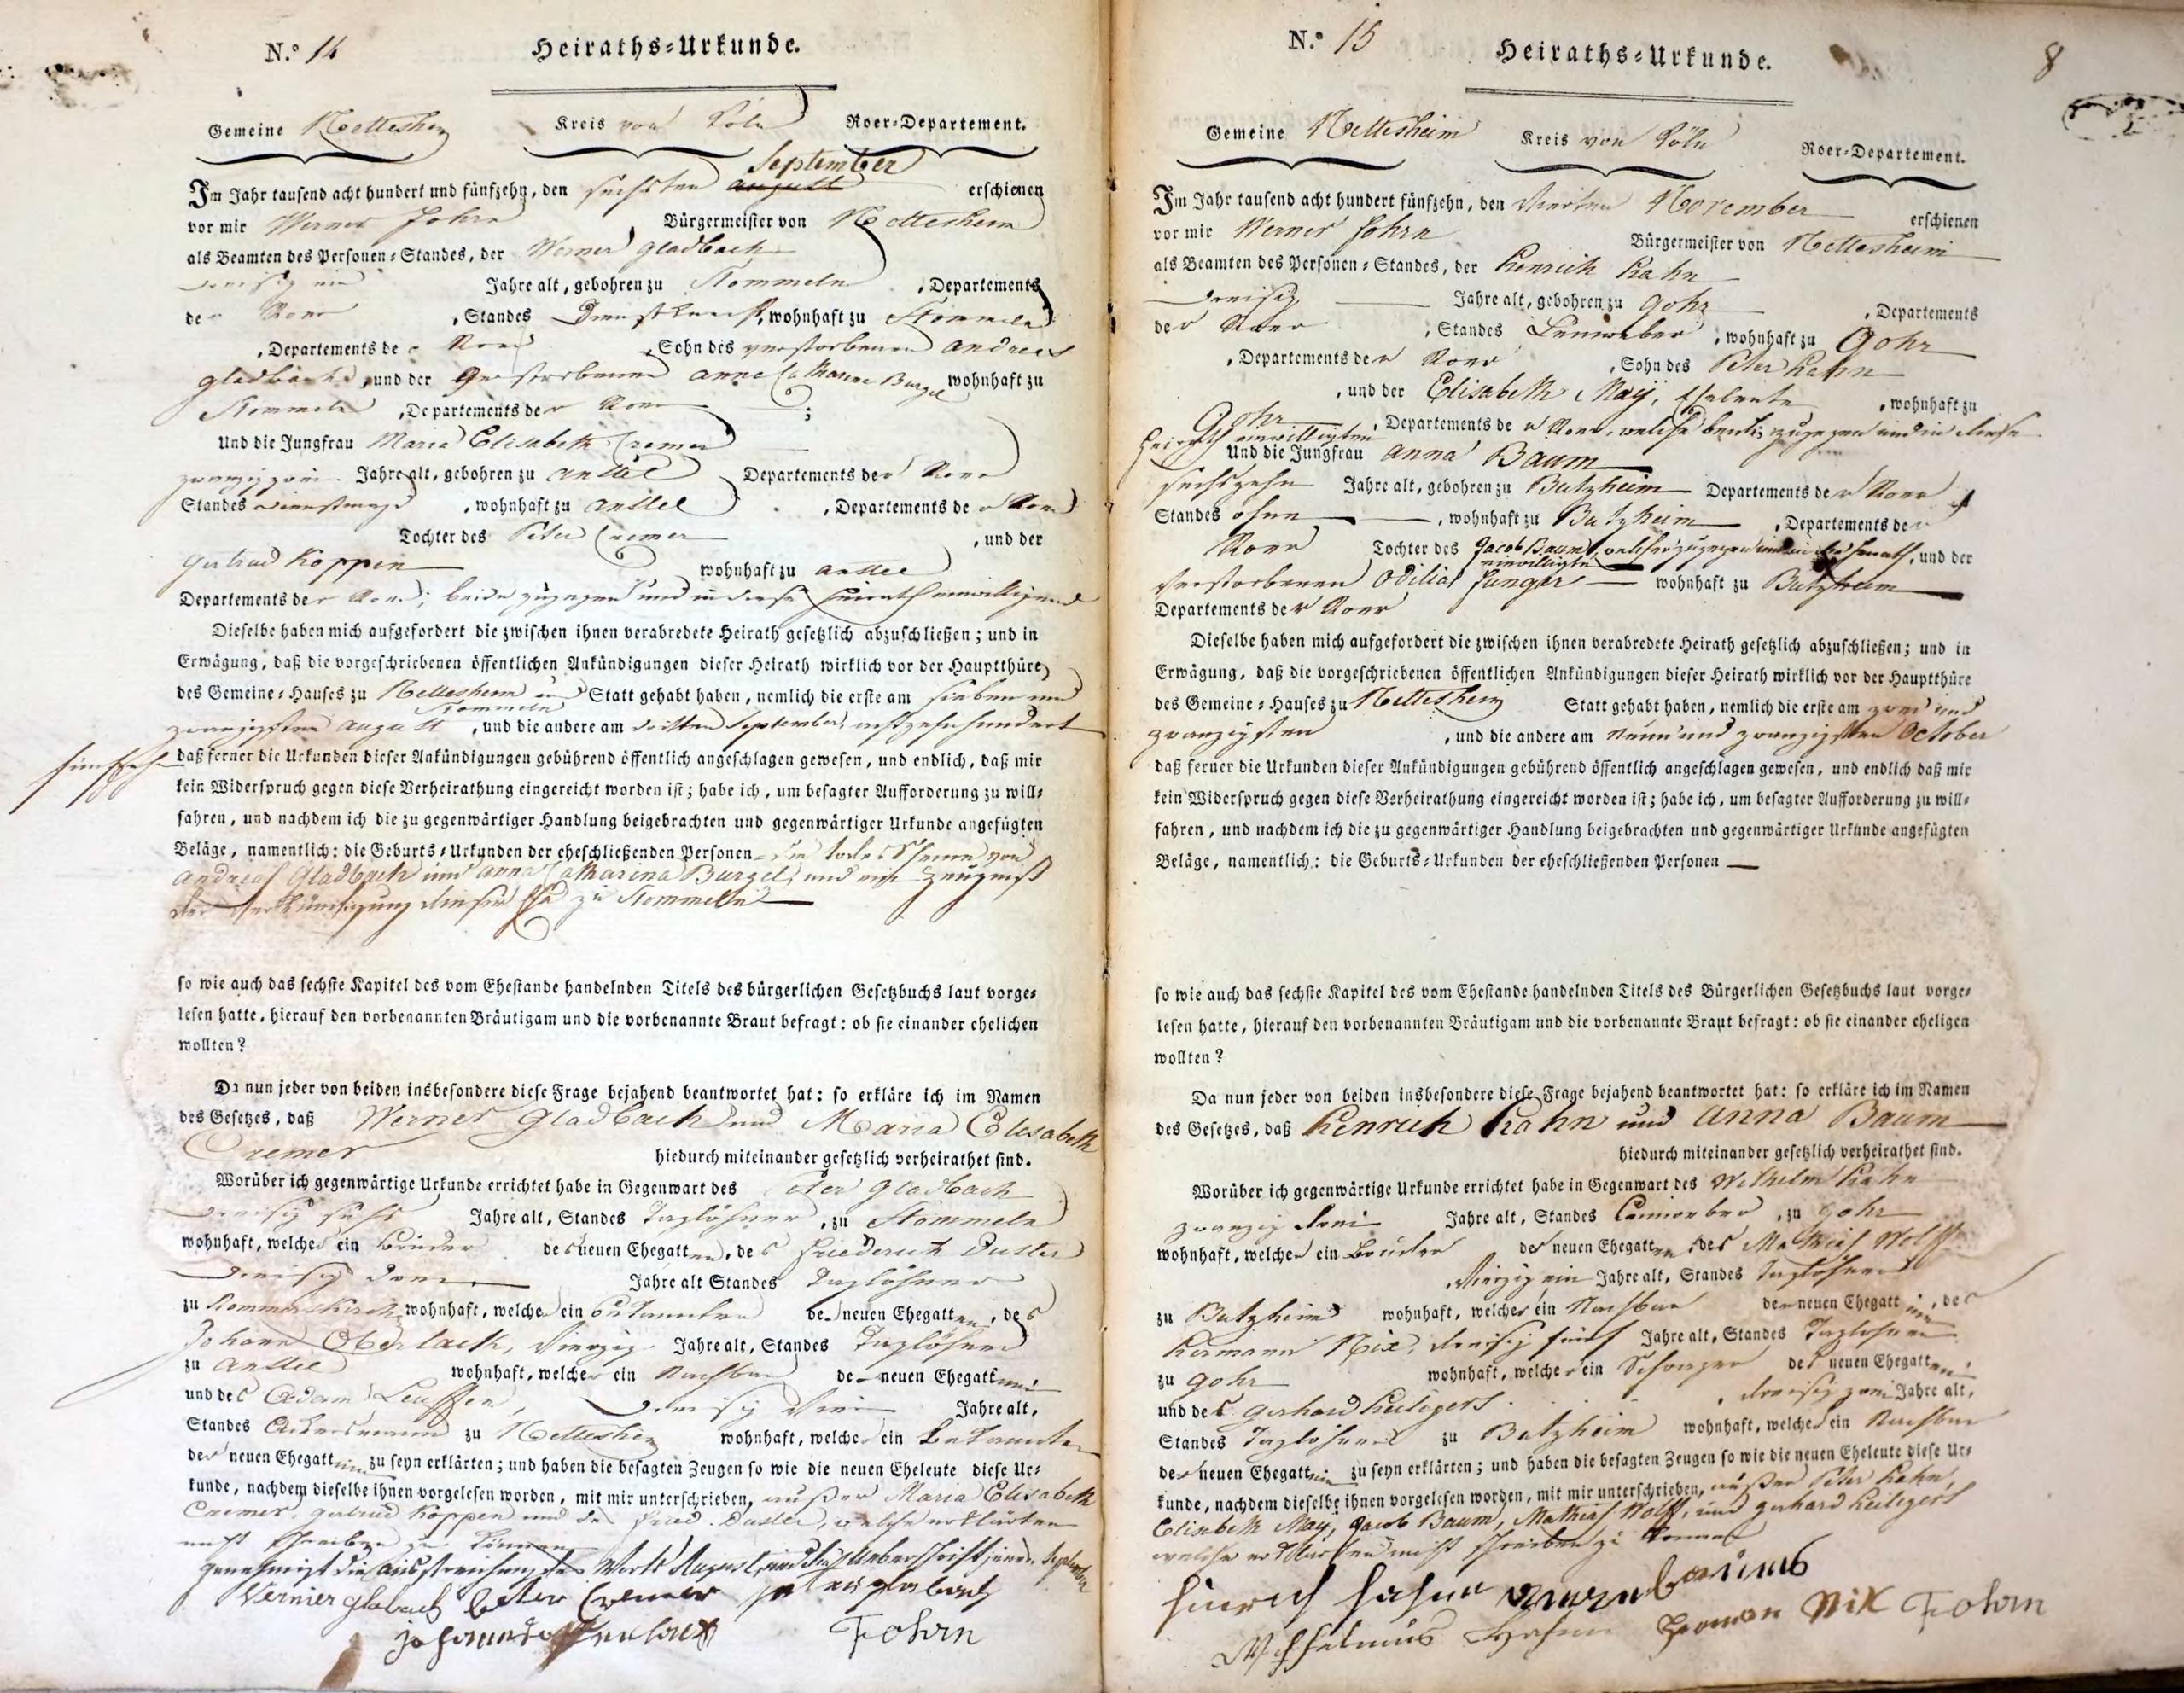 N.º 14
Heiraths-Urkunde.
Gemeine Nettesheim Kreis von Köln Roer-Departement.
September
Im Jahr tausend acht hundert und fünfzehn, den sechsten august erschienen
vor mir Werner Fohrn Bürgermeister von Nettesheim
als Beamten des Personen-Standes, der Werner Gladbach
dreisig ein Jahre alt, gebohren zu Stommeln, Departements
der Roer, Standes Dienstknecht, wohnhaft zu Stommeln
, Departements der Roer, Sohn des verstorbenen Andreas
Gladbach, und der verstorbenen Anna Catharina Burgel wohnhaft zu
Stommeln, Departements der Roer ;
Und die Jungfrau Maria Elisabeth Cremer
zwanzig zwei Jahre alt, gebohren zu Anstel Departements der Roer
Standes Dienstmagd, wohnhaft zu Anstel, Departements de Roer
Tochter des Peter Cremer, und der
Gertrud Koppen wohnhaft zu Anstel
Departements der Roer; beide zugegen und in diese Heirath einwilligend
Dieselbe haben mich aufgefordert die zwischen ihnen verabredete Heirath gesetzlich abzuschließen; und in
Erwägung, daß die vorgeschriebenen öffentlichen Ankündigungen dieser Heirath wirklich vor der Hauptthüre
des Gemeine-Hauses zu Nettesheim und Statt gehabt haben, nemlich die erste am sieben und
Stommeln
zwanzigsten August, und die andere am dritten September, achtzehnhundert
fünfzehn daß ferner die Urkunden dieser Ankündigungen gebührend öffentlich angeschlagen gewesen, und endlich, daß mir
kein Widerspruch gegen diese Verheirathung eingereicht worden ist; habe ich, um besagter Aufforderung zu will-
fahren, und nachdem ich die zu gegenwärtiger Handlung beigebrachten und gegenwärtiger Urkunde angefügten
Beläge, namentlich: die Geburts-Urkunden der eheschließenden Personen die todes Scheine von
Andreas Gladbach und Anna Catharina Burgel, und ein Zeugniß
der Verkündigung dieser Ehe zu Stommeln
so wie auch das sechste Kapitel des vom Ehestande handelnden Titels des bürgerlichen Gesetzbuchs laut vorge-
lesen hatte, hierauf den vorbenannten Bräutigam und die vorbenannte Braut befragt: ob sie einander ehelichen
wollten?
Da nun jeder von beiden insbesondere diese Frage bejahend beantwortet hat: so erkläre ich im Namen
des Gesetzes, daß Werner Gladbach und Maria Elisabeth
Cremer hiedurch miteinander gesetzlich verheirathet sind.
Worüber ich gegenwärtige Urkunde errichtet habe in Gegenwart des Peter Gladbach
dreisig sechs Jahre alt, Standes Taglöhner, zu Stommeln
wohnhaft, welcher ein Bruder des neuen Ehegatten, des Friederich Duster
dreisig Jahre alt Standes Taglöhner
zu Rommerskirchen wohnhaft, welcher ein Bekannter des neuen Ehegatten, des
Johann Oberlack, vierzig Jahre alt, Standes Taglöhner
zu Anstel wohnhaft, welcher ein Nachbar der neuen Ehegattinn
und des Adam Leuffen, dreisig vier Jahre alt,
Standes Ackersmann zu Nettesheim wohnhaft, welcher ein Bekannter
der neuen Ehegattinn zu seyn erklärten; und haben die besagten Zeugen so wie die neuen Eheleute diese Ur-
kunde, nachdem dieselbe ihnen vorgelesen worden, mit mir unterschrieben, außer Maria Elisabeth
Cremer, Gertrud Koppen und der Fried. Duster, welche erklärten
nicht schreiben zu können
genehmigt die Ausstreichung des Worts August, und die Ueberschrift jenen September
Vernier glabach Peter Cremer
Fohrn
N.º 15
Heiraths-Urkunde.
8
Gemeine Nettesheim Kreis von Köln Roer-Departement.
Im Jahr tausend acht hundert fünfzehn, den vierten November erschienen
vor mir Werner Fohrn Bürgermeister von Nettesheim
als Beamten des Personen-Standes, der Henrich Hahn
dreisig Jahre alt, gebohren zu Gohr, Departements
der Roer, Standes Leinweber, wohnhaft zu Gohr
, Departements der Roer, Sohn des Peter Hahn
, und der Elisabeth May, Eheleute, wohnhaft zu
Gohr, Departements der Roer, welche beide zugegen und in diese
Heirath einwilligten
Und die Jungfrau Anna Baum
sechszehn Jahre alt, gebohren zu Butzheim Departements der Roer
Standes ohne, wohnhaft zu Butzheim, Departements der
Roer Tochter des Jacob Baum, welcher zugegen und in die Heirath, und der
einwilligte
verstorbenen Odilia Junger wohnhaft zu Butzheim
Departements der Roer
Dieselbe haben mich aufgefordert die zwischen ihnen verabredete Heirath gesetzlich abzuschließen; und in
Erwägung, daß die vorgeschriebenen öffentlichen Ankündigungen dieser Heirath wirklich vor der Hauptthüre
des Gemeine-Hauses zu Nettesheim Statt gehabt haben, nemlich die erste am zwei und
zwanzigsten, und die andere am neun und zwanzigsten October
daß ferner die Urkunden dieser Ankündigungen gebührend öffentlich angeschlagen gewesen, und endlich daß mir
kein Widerspruch gegen diese Verheirathung eingereicht worden ist; habe ich, um besagter Aufforderung zu will-
fahren, und nachdem ich die zu gegenwärtiger Handlung beigebrachten und gegenwärtiger Urkunde angefügten
Beläge, namentlich: die Geburts-Urkunden der eheschließenden Personen
so wie auch das sechste Kapitel des vom Ehestande handelnden Titels des Bürgerlichen Gesetzbuchs laut vorge-
lesen hatte, hierauf den vorbenannten Bräutigam und die vorbenannte Braut befragt: ob sie einander eheligen
wollten?
Da nun jeder von beiden insbesondere diese Frage bejahend beantwortet hat: so erkläre ich im Namen
des Gesetzes, daß Henrich Hahn und Anna Baum
hiedurch miteinander gesetzlich verheirathet sind.
Worüber ich gegenwärtige Urkunde errichtet habe in Gegenwart des Wilhelm Hahn
zwanzig drei Jahre alt, Standes Leinweber, zu Gohr
wohnhaft, welcher ein Bruder des neuen Ehegatten, des Mathias Wolff
vierzig ein Jahre alt, Standes Taglöhner
zu Butzheim wohnhaft, welcher ein Nachbar der neuen Ehegattinn, des
Hermann Nix, dreisig fünf Jahre alt, Standes Taglöhner
zu Gohr wohnhaft, welcher ein Schwager des neuen Ehegatten
und des Gerhard Heiligers dreisig zwei Jahre alt,
Standes Taglöhner zu Butzheim wohnhaft, welcher ein Nachbar
der neuen Ehegattinn zu seyn erklärten; und haben die besagten Zeugen so wie die neuen Eheleute diese Ur-
kunde, nachdem dieselbe ihnen vorgelesen worden, mit mir unterschrieben, außer Peter Hahn,
Elisabeth May, Jacob Baum, Mathias Wolff, und Gerhard Heiligers
welche erklärten nicht schreiben zu können
Hinrich Hahn
Wilhelmus Hahn Herman Nix Fohrn